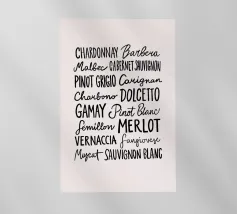 CHARDONNAY Barbera
Malbec CABERNET SAUVIGNON
PINOT GRIGIO Carignan
Charbono DOLCETTO
GAMAY Pinot Blanc
Semillon MERLOT
VERNACCIA Sangiovese
Muscat SAUVIGNON BLANC